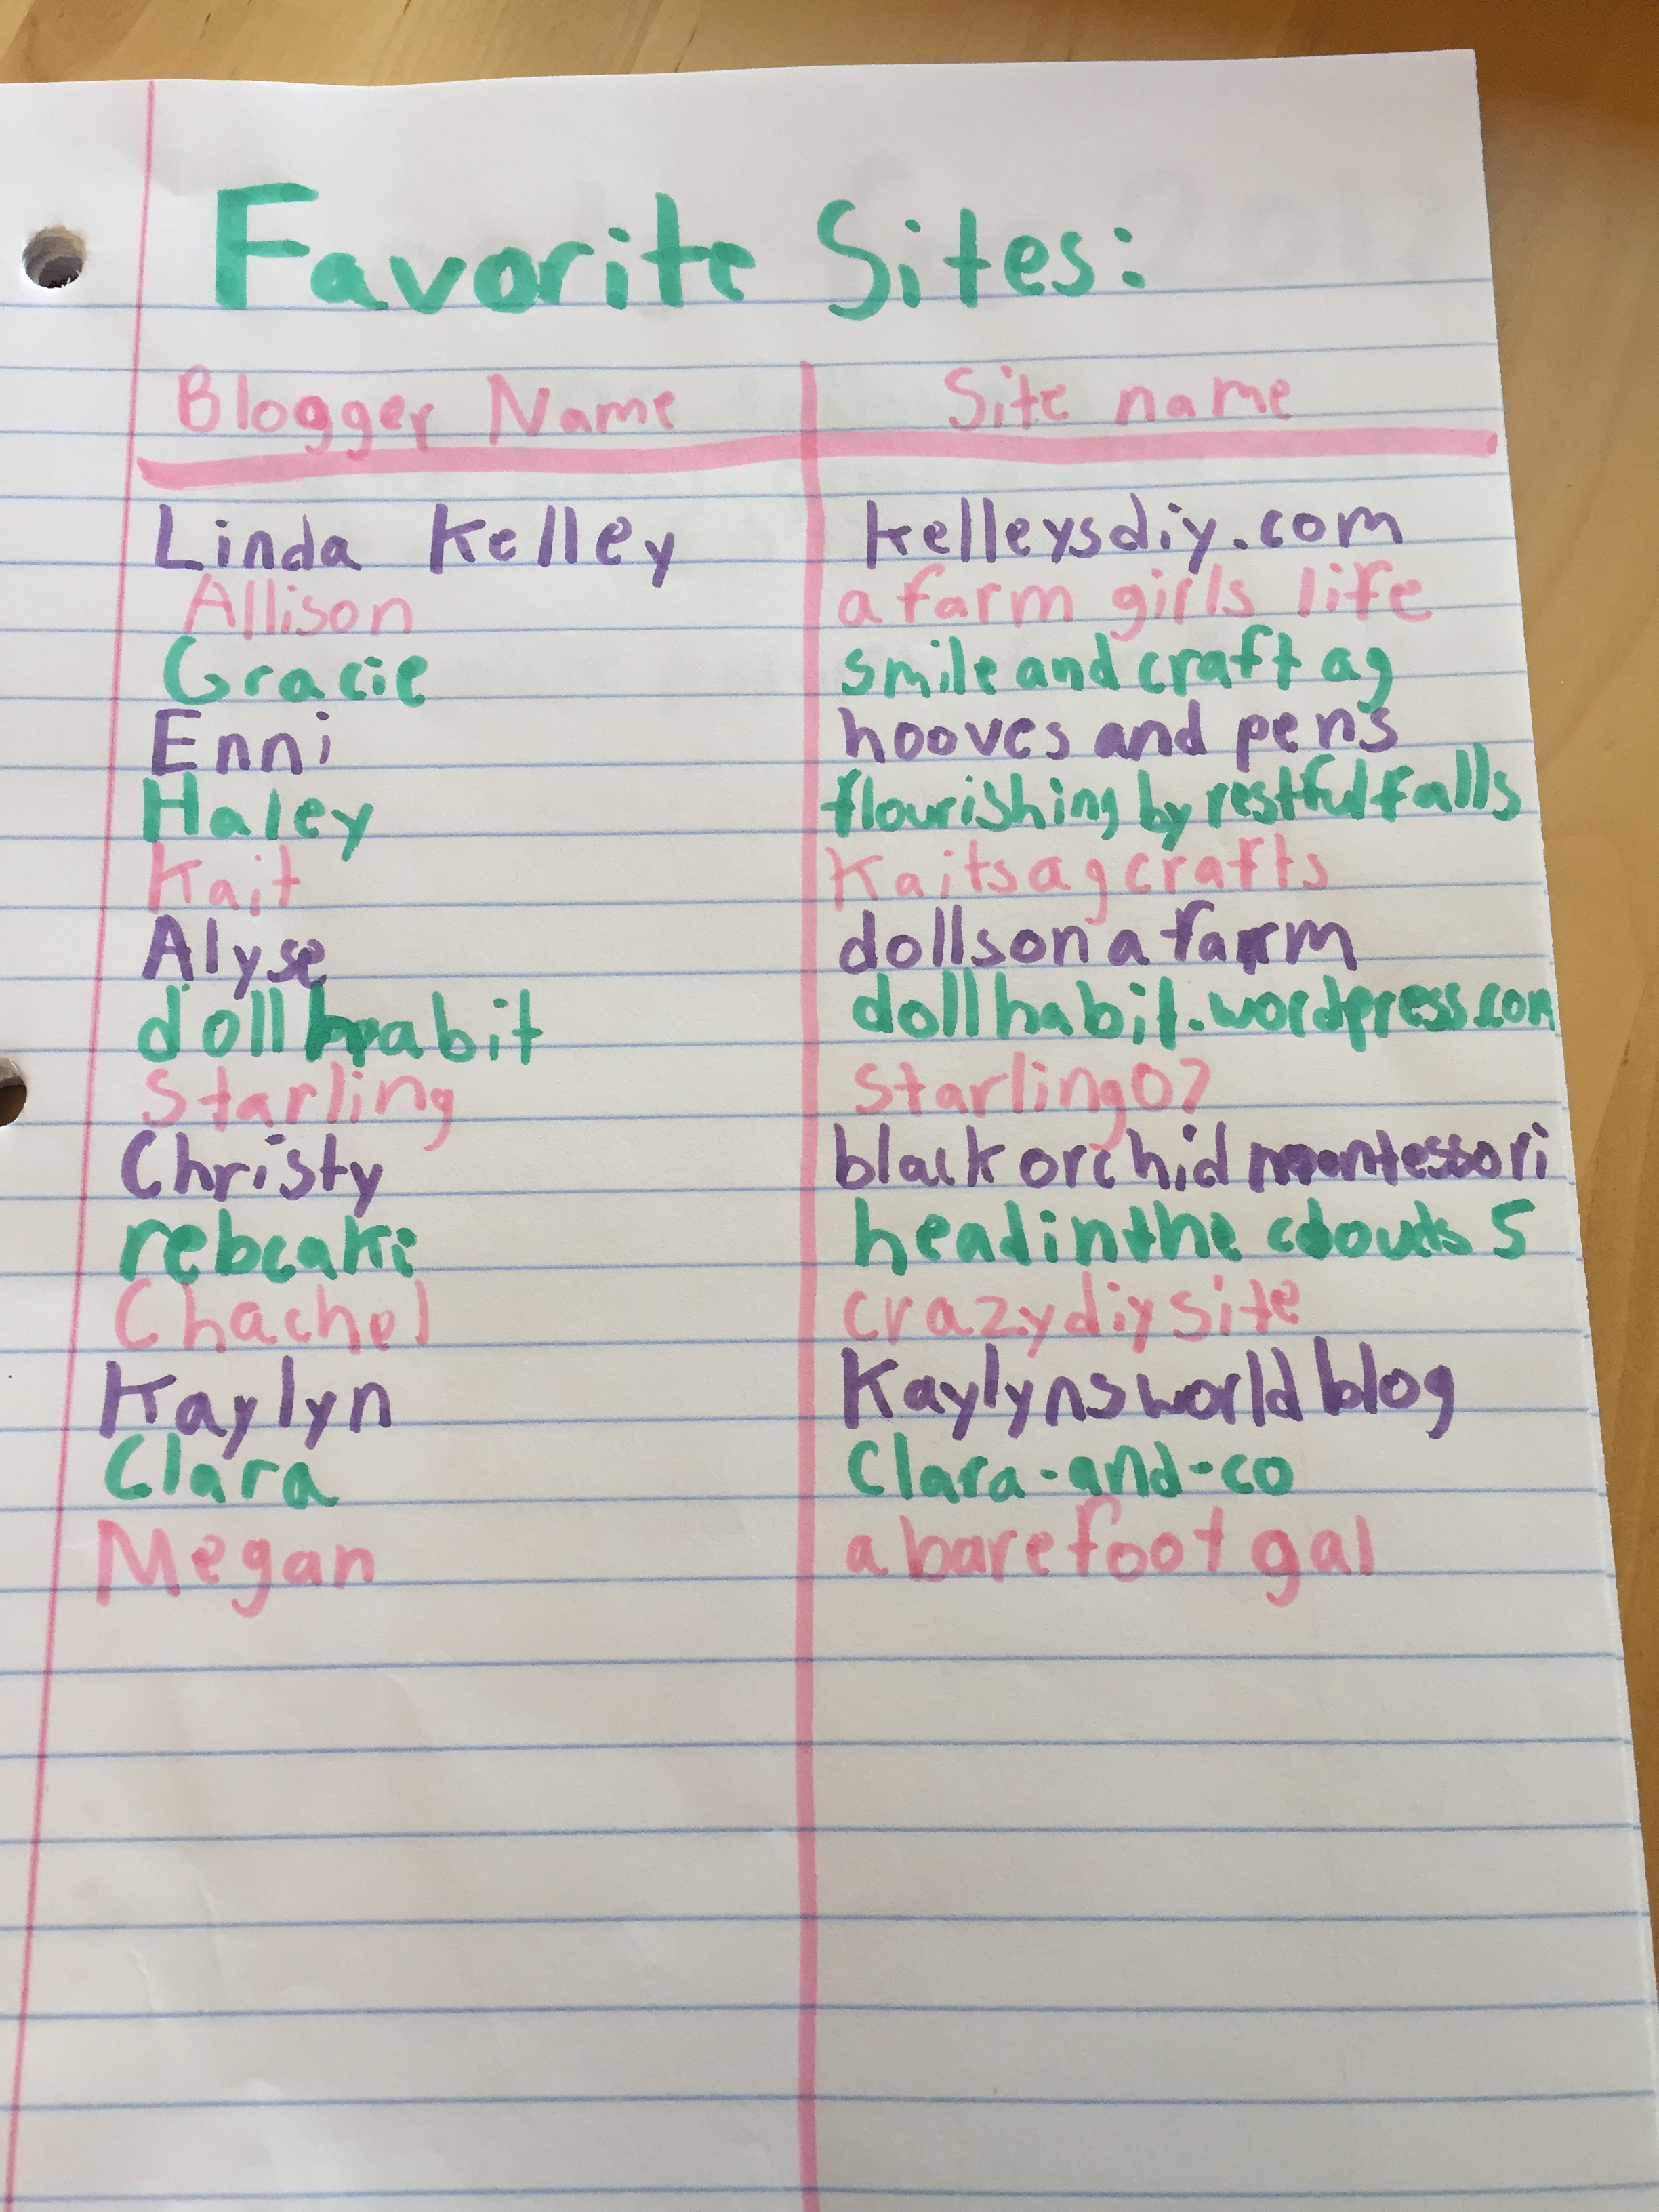 Favorite Sites:
Blogger Name Site name
Linda Kelley kelleysdiy.com
Allison a farm girls life
Gracie smile and craft ag
Enni hooves and pens
Haley flourishing by restful falls
Kait Kaitsagcrafts
Alyse dollson a farm
doll habit dollhabit.wordpress.com
Starling Starling07
Christy black orchid montessori
rebcaki headinthe clouds 5
Chachel crazydiysite
Kaylyn Kaylynsworldblog
Clara Clara-and-co
Megan a barefoot gal